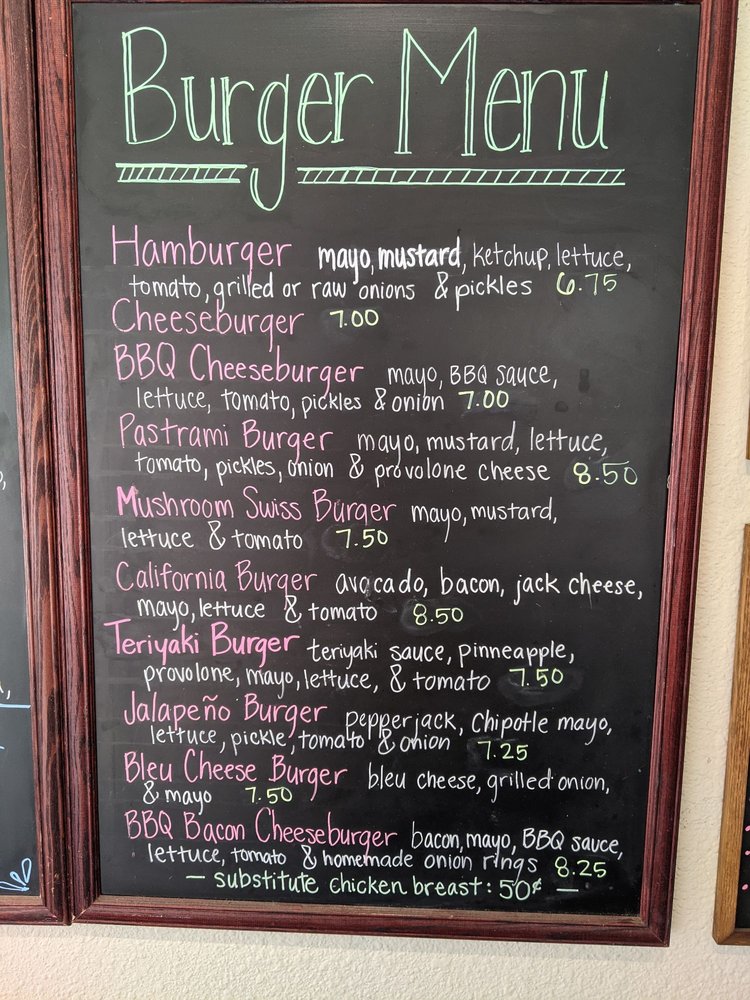 Burger Menu
Hamburger mayo, mustard, ketchup, lettuce,
tomato, grilled or raw onions & pickles 6.75
Cheeseburger 7.00
BBQ Cheeseburger mayo, BBQ sauce,
lettuce, tomato, pickles & onion 7.00
Pastrami Burger mayo, mustard, lettuce,
tomato, pickles, onion & provolone cheese 8.50
Mushroom Swiss Burger mayo, mustard,
lettuce & tomato 7.50
California Burger avocado, bacon, jack cheese,
mayo, lettuce & tomato 8.50
Teriyaki Burger teriyaki sauce, pinneapple,
provolone, mayo, lettuce, & tomato 7.50
Jalapeño Burger pepperjack, Chipotle mayo,
lettuce, pickle, tomato & onion 7.25
Bleu Cheese Burger bleu cheese, grilled onion,
& mayo 7.50
BBQ Bacon Cheeseburger bacon, mayo, BBQ sauce,
lettuce, tomato & homemade onion rings 8.25
— substitute chicken breast: 50¢ —